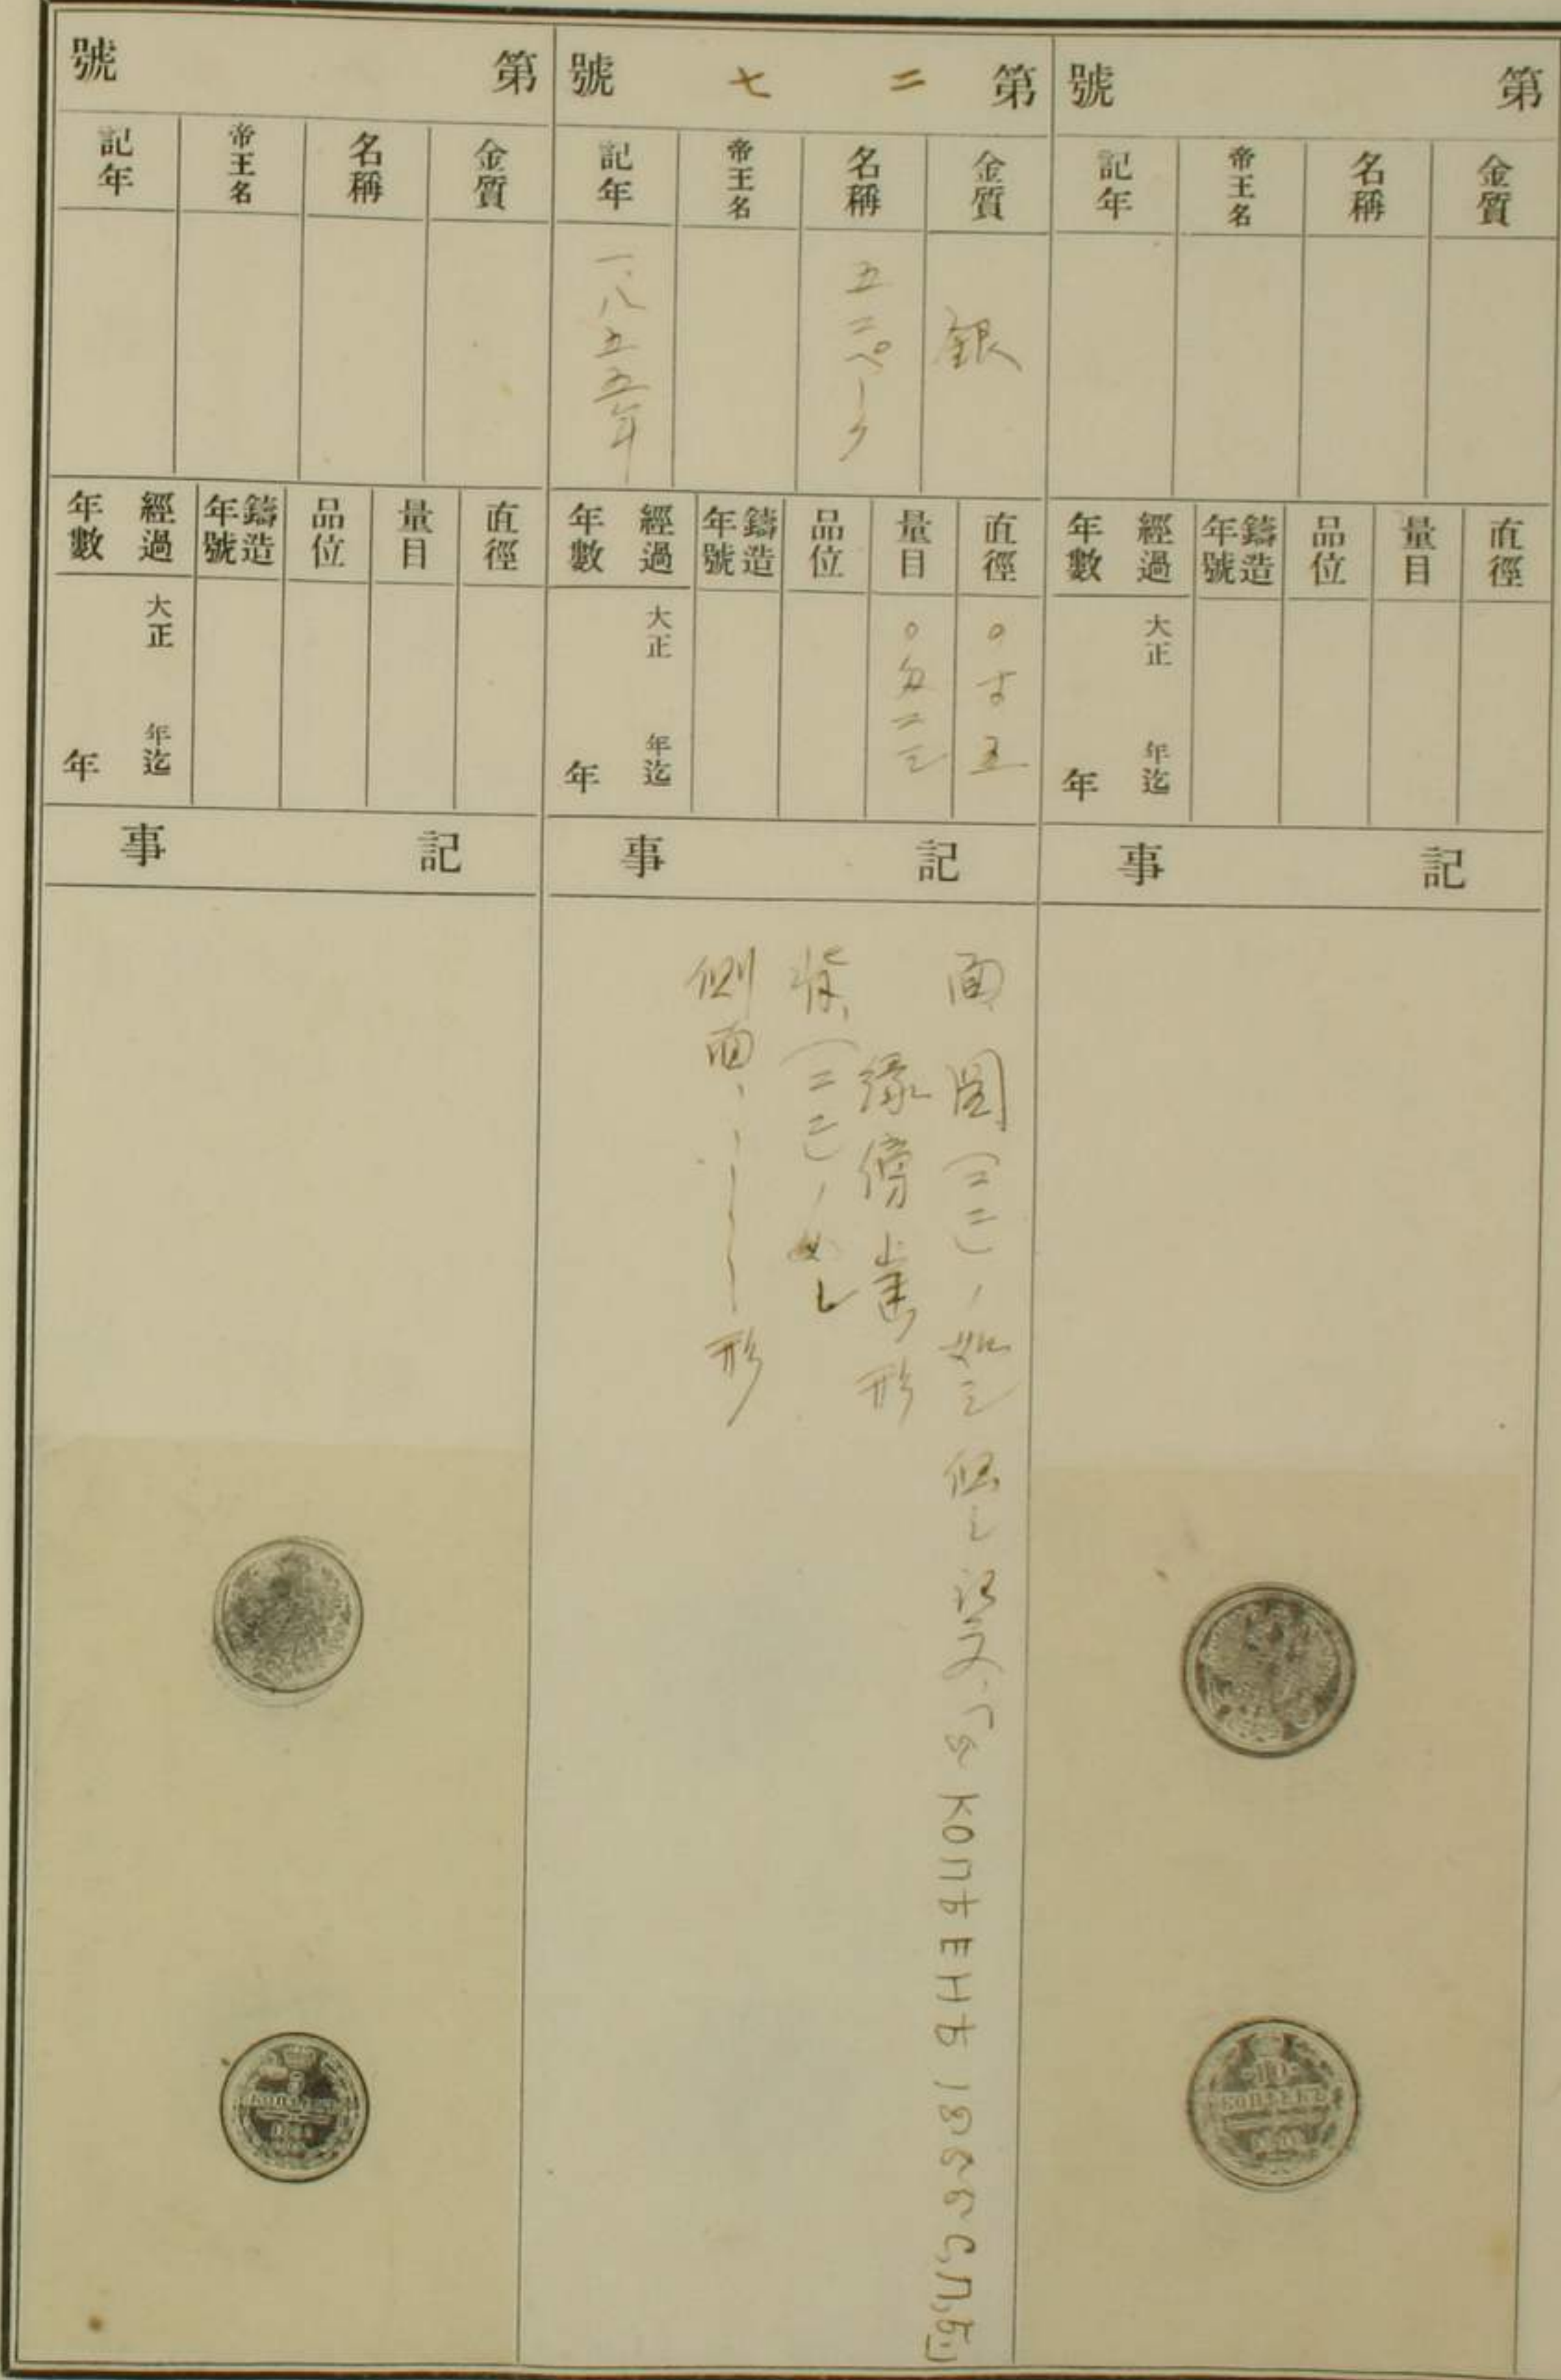 第 號
金質
名稱
帝王名
記年
直徑
量目
品位
鑄造年號
經過年數
大正 年迄
年
記 事
10
КОПѢЕКЪ
第 二七 號
金質
銀
名稱
五コペーク
帝王名
記年
一八五五年
直徑
〇寸五
量目
〇匁二三
品位
鑄造年號
經過年數
大正 年迄
年
記 事
面 圖(二二)ノ如シ 但シ 記文ハ「5 КОПѢЕКЪ 1855 С,П,Б」
縁傍歯形
背、(二二)ノ如し
側面、 形
第 號
金質
名稱
帝王名
記年
直徑
量目
品位
鑄造年號
經過年數
大正 年迄
年
記 事
5
КОПѢЕКЪ